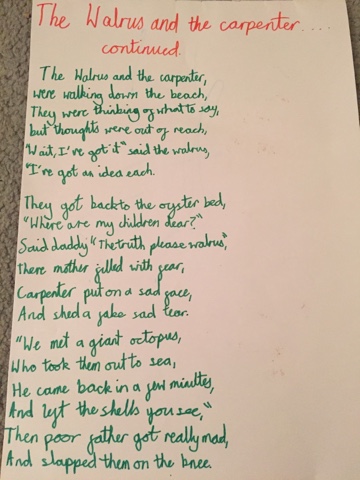 The Walrus and the carpenter....
continued.
The Walrus and the carpenter,
were walking down the beach,
They were thinking of what to say,
but thoughts were out of reach,
"Wait, I've got it" said the walrus,
"I've got an idea each.
They got back to the oyster bed,
"Where are my children dear?"
Said daddy "The truth please walrus",
there mother filled with fear,
Carpenter put on a sad face,
And shed a fake sad tear.
"We met a giant octopus,
Who took them out to sea,
He came back in a few minutes,
And left the shells you see,"
Then poor father got really mad,
And slapped them on the knee.